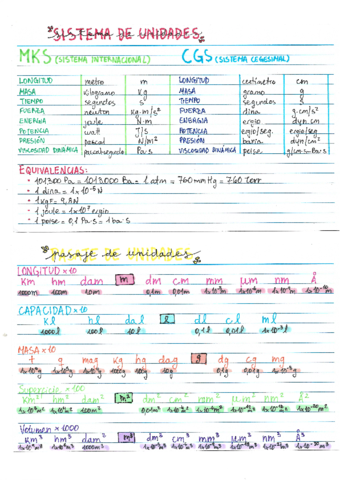 SISTEMA DE UNIDADES
MKS (SISTEMA INTERNACIONAL) CGS (SISTEMA CEGESIMAL)
LONGITUD metro m LONGITUD centímetro cm
MASA kilogramo Kg MASA gramo g
TIEMPO segundos s TIEMPO segundos s
FUERZA newton Kg·m/s² FUERZA dina g·cm/s²
ENERGÍA joule N·m ENERGÍA ergio dyn·cm
POTENCIA watt J/s POTENCIA ergio/seg. ergio/seg
PRESIÓN pascal N/m² PRESIÓN baria dyn/cm²
VISCOSIDAD DINÁMICA Pa·s VISCOSIDAD DINÁMICA poise
EQUIVALENCIAS:
101300 Pa = 1013000 Ba = 1 atm = 760 mmHg = 760 torr
1 dina = 1x10⁻⁵N
1 kgF = 9,8N
1 joule = 1x10⁷ ergio
1 poise = 0,1 Pa·s = 1 ba·s
pasaje de unidades
LONGITUD x10
Km hm dam m dm cm mm μm nm Å
1000m 100m 10m 0,1m 0,01m 1x10⁻³m 1x10⁻⁶m 1x10⁻⁹m 1x10⁻¹⁰m
CAPACIDAD x10
kl hl dal l dl cl ml
1000l 100l 10l 0,1l 0,01l 1x10⁻³l
MASA x10
t q mag Kg hg dag g dg cg mg
1000g 100g 10g 0,1g 0,01g 1x10⁻³g
Superficie x100
km² hm² dam² m² dm² cm² mm² μm² nm² Å²
100m² 0,01m²
Volumen x1000
km³ hm³ dam³ m³ dm³ cm³ mm³ μm³ nm³ Å³